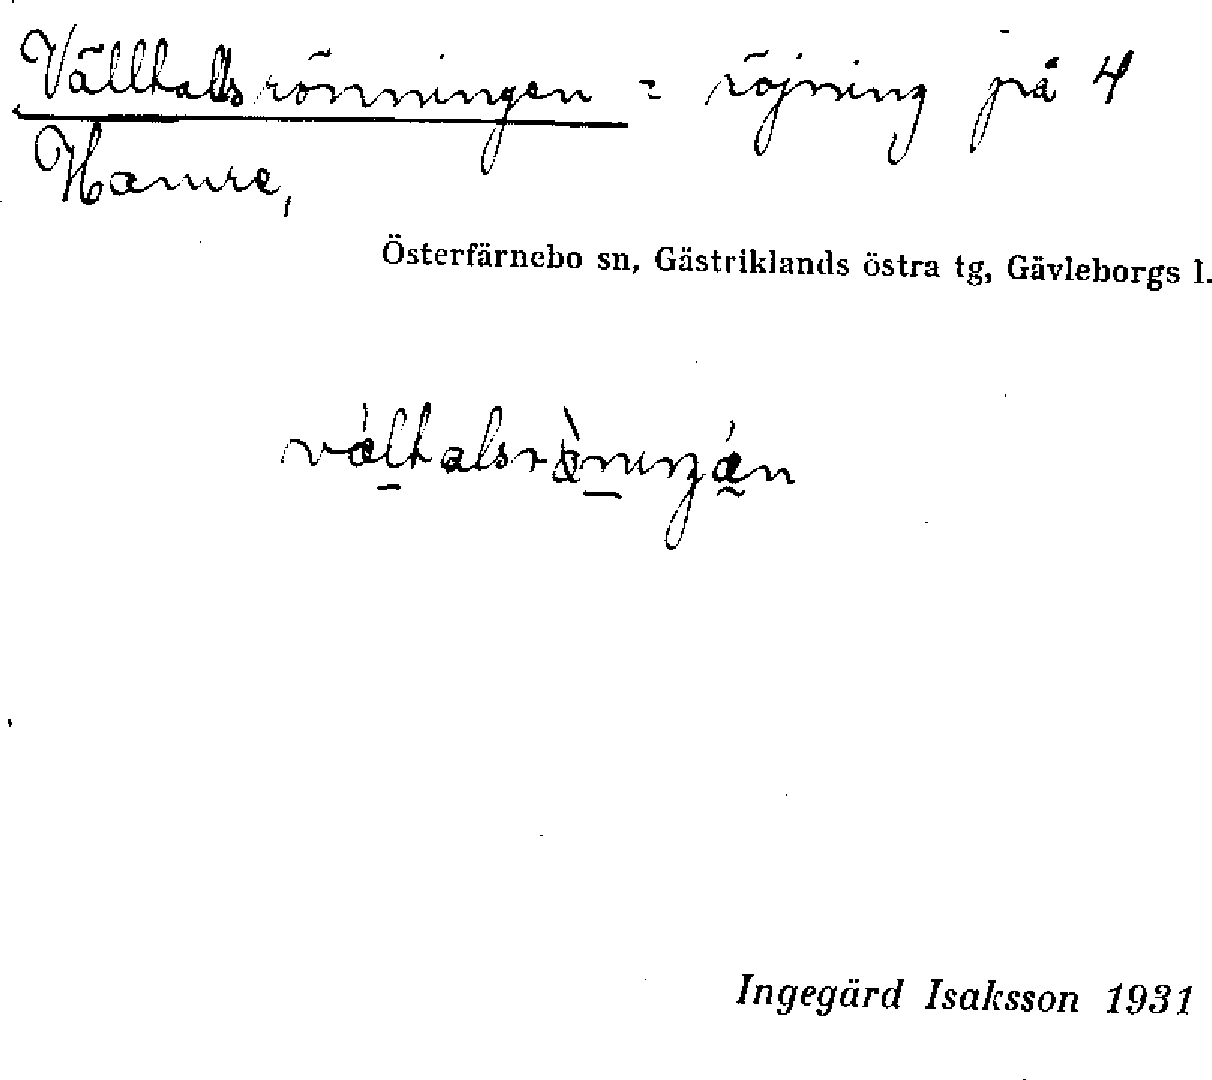 Vällhallsrönningen = röjning på 4
Hamre,
Österfärnebo sn, Gästriklands östra tg, Gävleborgs l.
Ingegärd Isaksson 1931